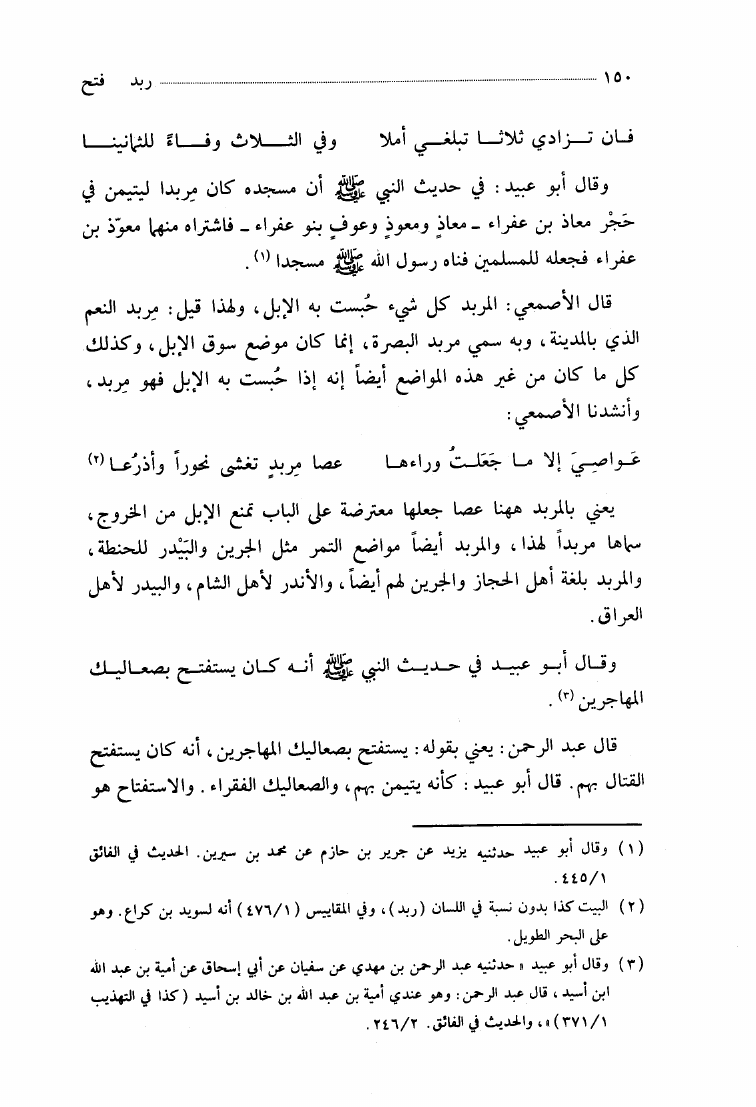 ١٥٠ ربد فتح
فـان تـزادي ثلاثـا تبلغـي أملا وفي الثـلاث وفـاءً للثمانينـا
وقال أبو عبيد : في حديث النبي ﷺ أن مسجده كان مِربدا ليتيمن في
حَجْر معاذ بن عفراء ـ معاذٍ ومعوذٍ وعوفٍ بنو عفراء ـ فاشتراه منهما معوّذ بن
عفراء فجعله للمسلمين فناه رسول الله ﷺ مسجدا (١) .
قال الأصمعي : المربد كل شيء حُبست به الإبل ، ولهذا قيل : مِربد النعم
الذي بالمدينة ، وبه سمي مربد البصرة ، إنما كان موضع سوق الإبل ، وكذلك
كل ما كان من غير هذه المواضع أيضاً إنه إذا حُبست به الإبل فهو مِربد ،
وأنشدنا الأصمعي :
عَـواصِـيَ إلا مـا جَعَلـتُ وراءهـا عصا مِربدٍ تغشى نحوراً وأذرُعـا (٢)
يعني بالمربد ههنا عصا جعلها معترضة على الباب تمنع الإبل من الخروج ،
سماها مربداً لهذا ، والمربد أيضاً مواضع التمر مثل الجرين والبَيْدر للحنطة ،
والمربد بلغة أهل الحجاز والجرين لهم أيضاً ، والأندر لأهل الشام ، والبيدر لأهل
العراق .
وقـال أبـو عبيـد في حـديـث النبي ﷺ أنـه كـان يستفتـح بصعـاليـك
المهاجرين (٣) .
قال عبد الرحمن : يعني بقوله : يستفتح بصعاليك المهاجرين ، أنه كان يستفتح
القتال بهم . قال أبو عبيد : كأنه يتيمن بهم ، والصعاليك الفقراء . والاستفتاح هو
(١) وقال أبو عبيد حدثنيه يزيد عن جرير بن حازم عن محمد بن سيرين . الحديث في الفائق
٤٤٥/١ .
(٢) البيت كذا بدون نسبة في اللسان (ربد) ، وفي المقاييس (٤٧٦/١) أنه لسويد بن كراع . وهو
على البحر الطويل .
(٣) وقال أبو عبيد « حدثنيه عبد الرحمن بن مهدي عن سفيان عن أبي إسحاق عن أمية بن عبد الله
ابن أسيد ، قال عبد الرحمن : وهو عندي أمية بن عبد الله بن خالد بن أسيد (كذا في التهذيب
٣٧١/١) » ، والحديث في الفائق . ٢٤٦/٢ .